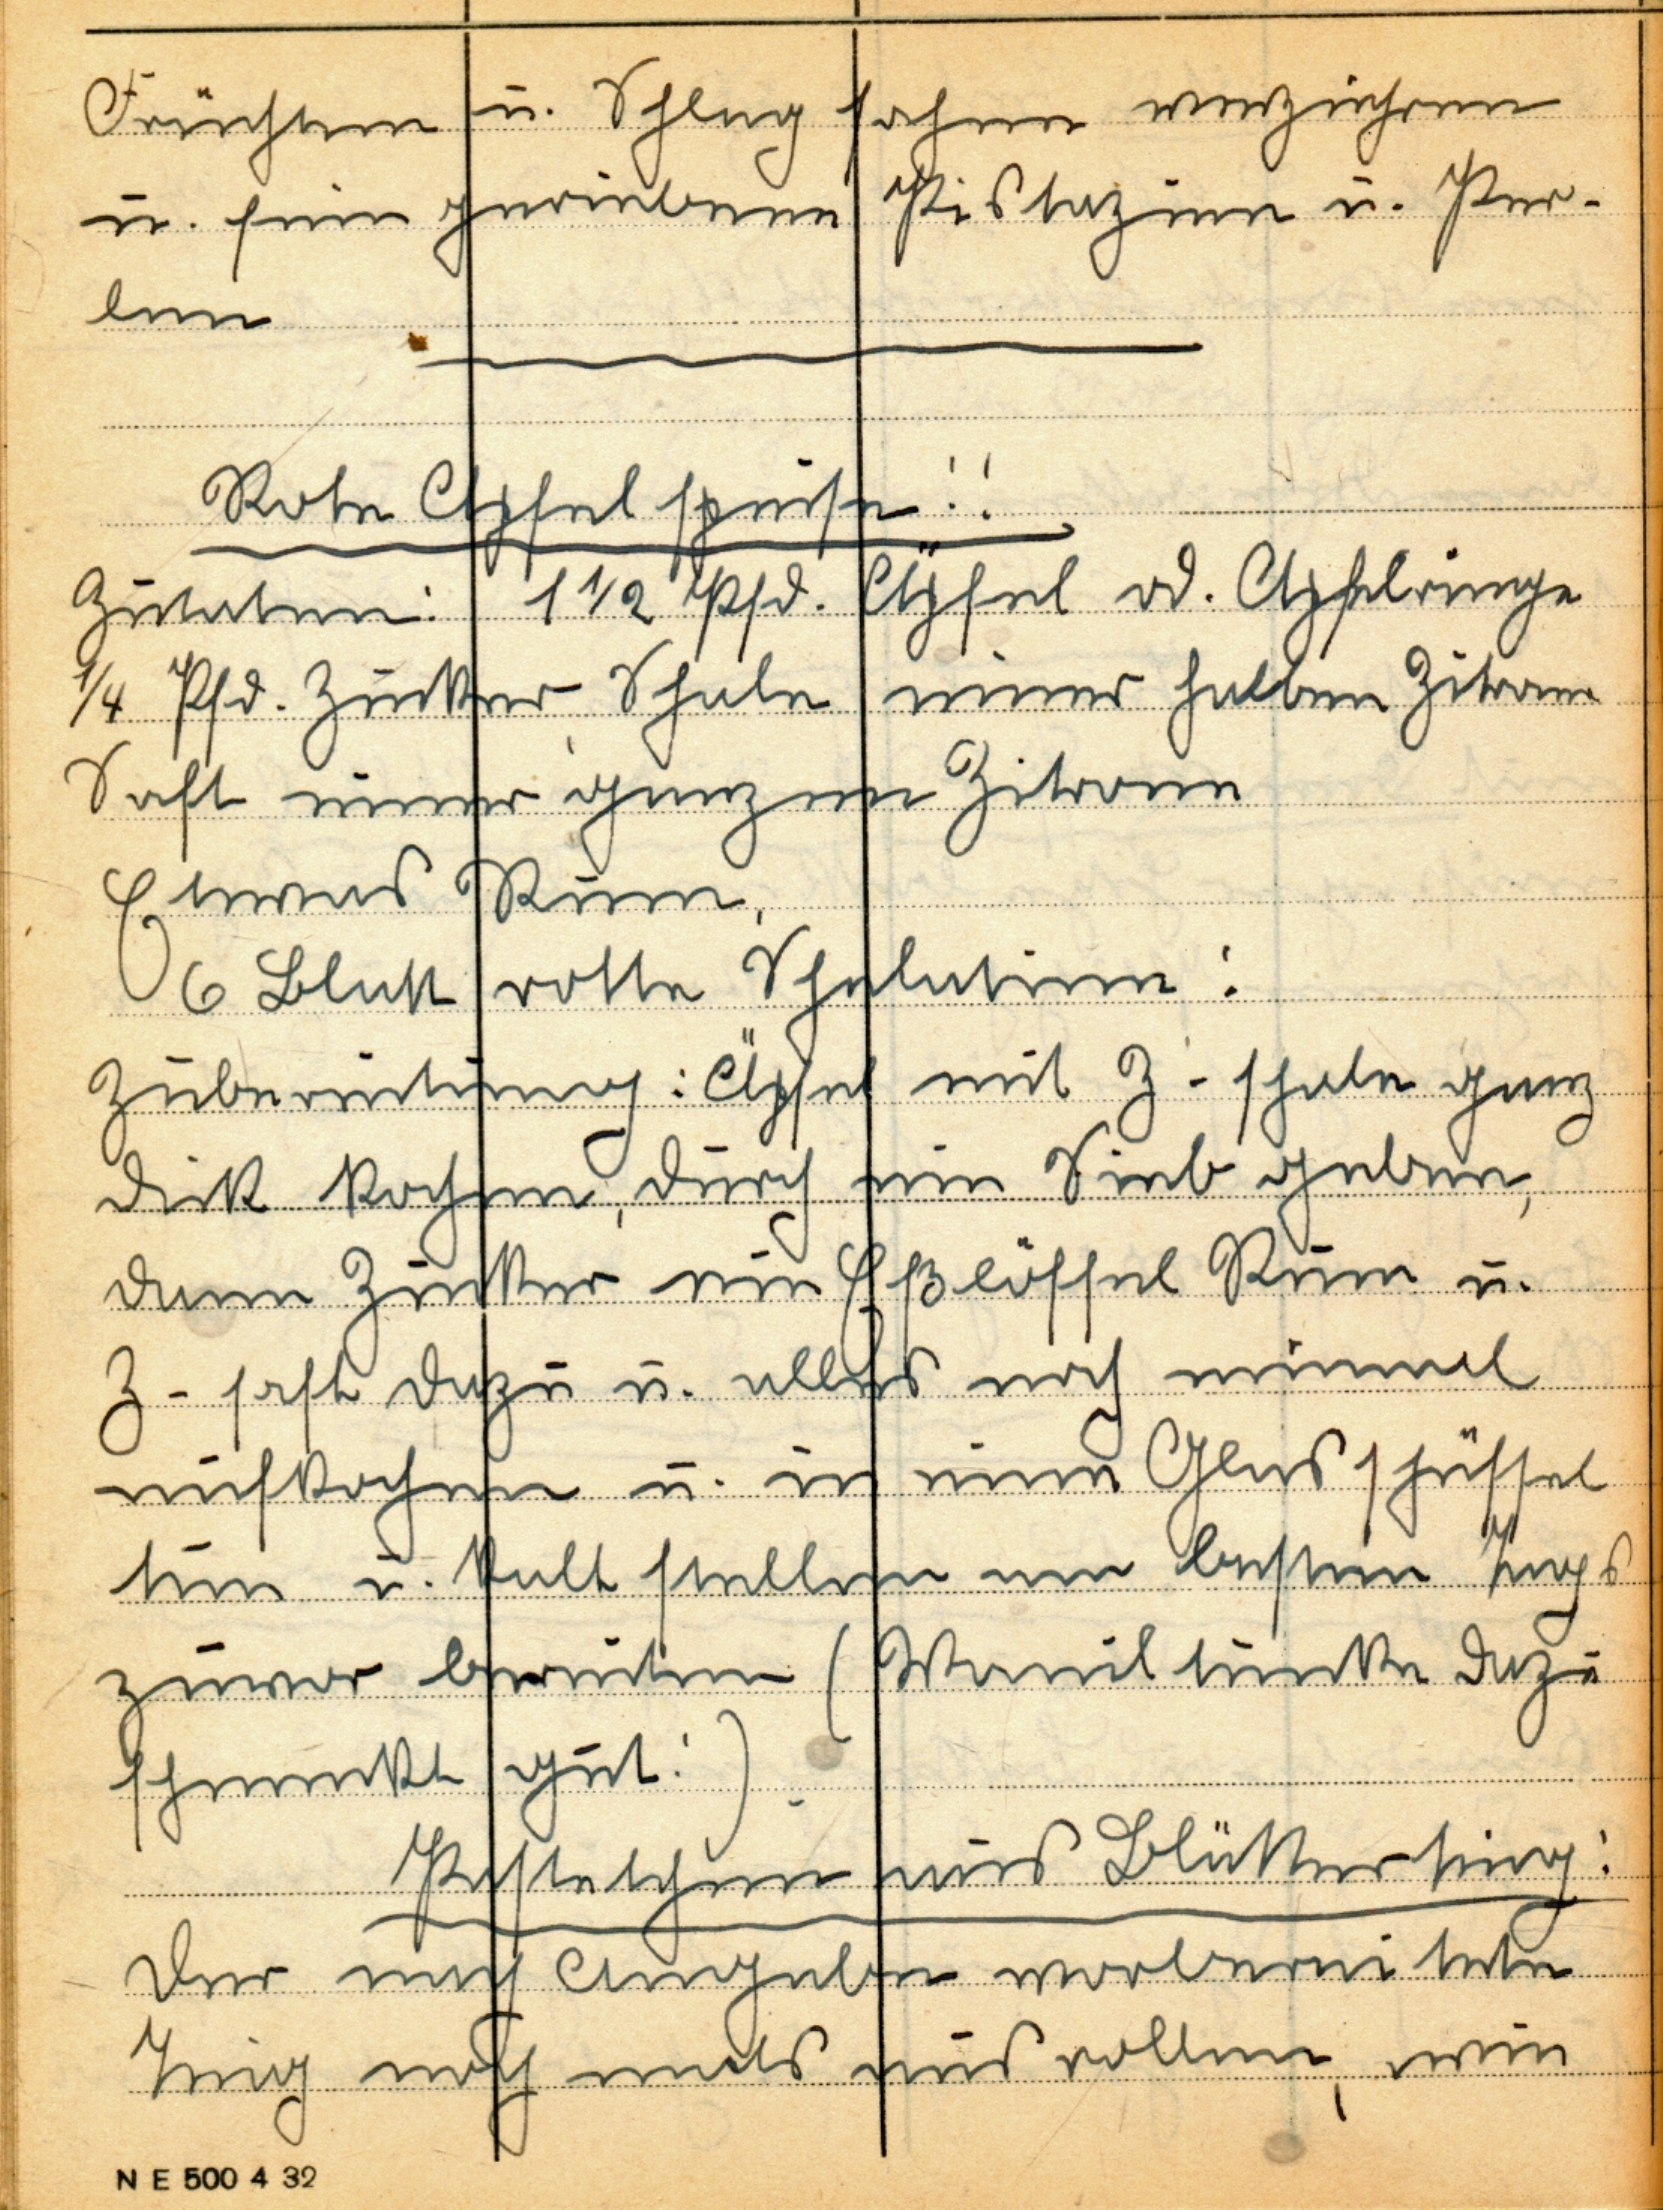 Früchten u. Schlagsahne verziehren
u. fein geriebene Pistazien u. Per-
len
Rote Apfelspeise!!
Zutaten: 1 1/2 Pfd. Äpfel od. Apfelringe
1/4 Pfd. Zucker, Schale einer halben Zitrone
Saft einer ganzen Zitrone
Etwas Rum,
6 Blatt rotte Schelatine!
Zubereitung: Äpfel mit Z-schale ganz
dick kochen, durch ein Sieb geben,
dann Zucker ein Eßlöffel Rum u.
Z-saft dazu u. alles noch einmal
aufkochen u. in eine Glasschüssel
tun u. kalt stellen am besten Tags
zuvor bereiten (Waniltunke dazu
schmeckt gut!).
Pastetchen aus Blätterteig!
Der nach Angabe vorbereitete
Teig noch mals ausrollen, wie
N E 500 4 32